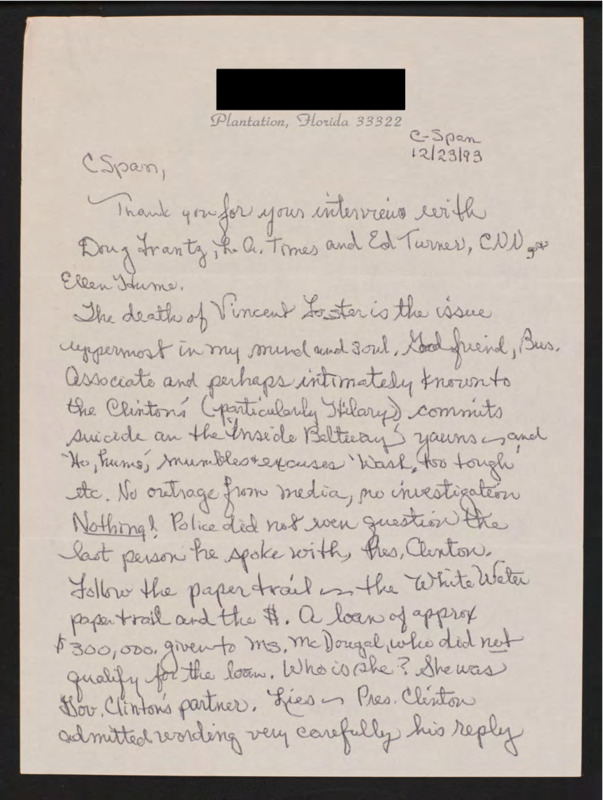 Plantation, Florida 33322
C-Span
12/23/93
C Span,
Thank you for your interview with
Doug Frantz, L.A. Times and Ed Turner, CNN &
Ellen Hume.
The death of Vincent Foster is the issue
uppermost in my mind and soul. Good friend, Bus.
Associate and perhaps intimately known to
the Clinton's (particularly Hilary) commits
suicide an the "Inside Beltway" yawns ~ and
"Ho, hums," mumbles excuses 'Wash, too tough'
etc. No outrage from media, no investigation
Nothing! Police did not even question the
last person he spoke with, Pres, Clinton.
Follow the paper trail ~ the White Water
paper trail and the $. A loan of approx
$300,000, given to Ms. McDougal, who did not
qualify for the loan. Who is she? She was
Gov. Clinton's partner. Lies ~ Pres. Clinton
admitted wording very carefully his reply